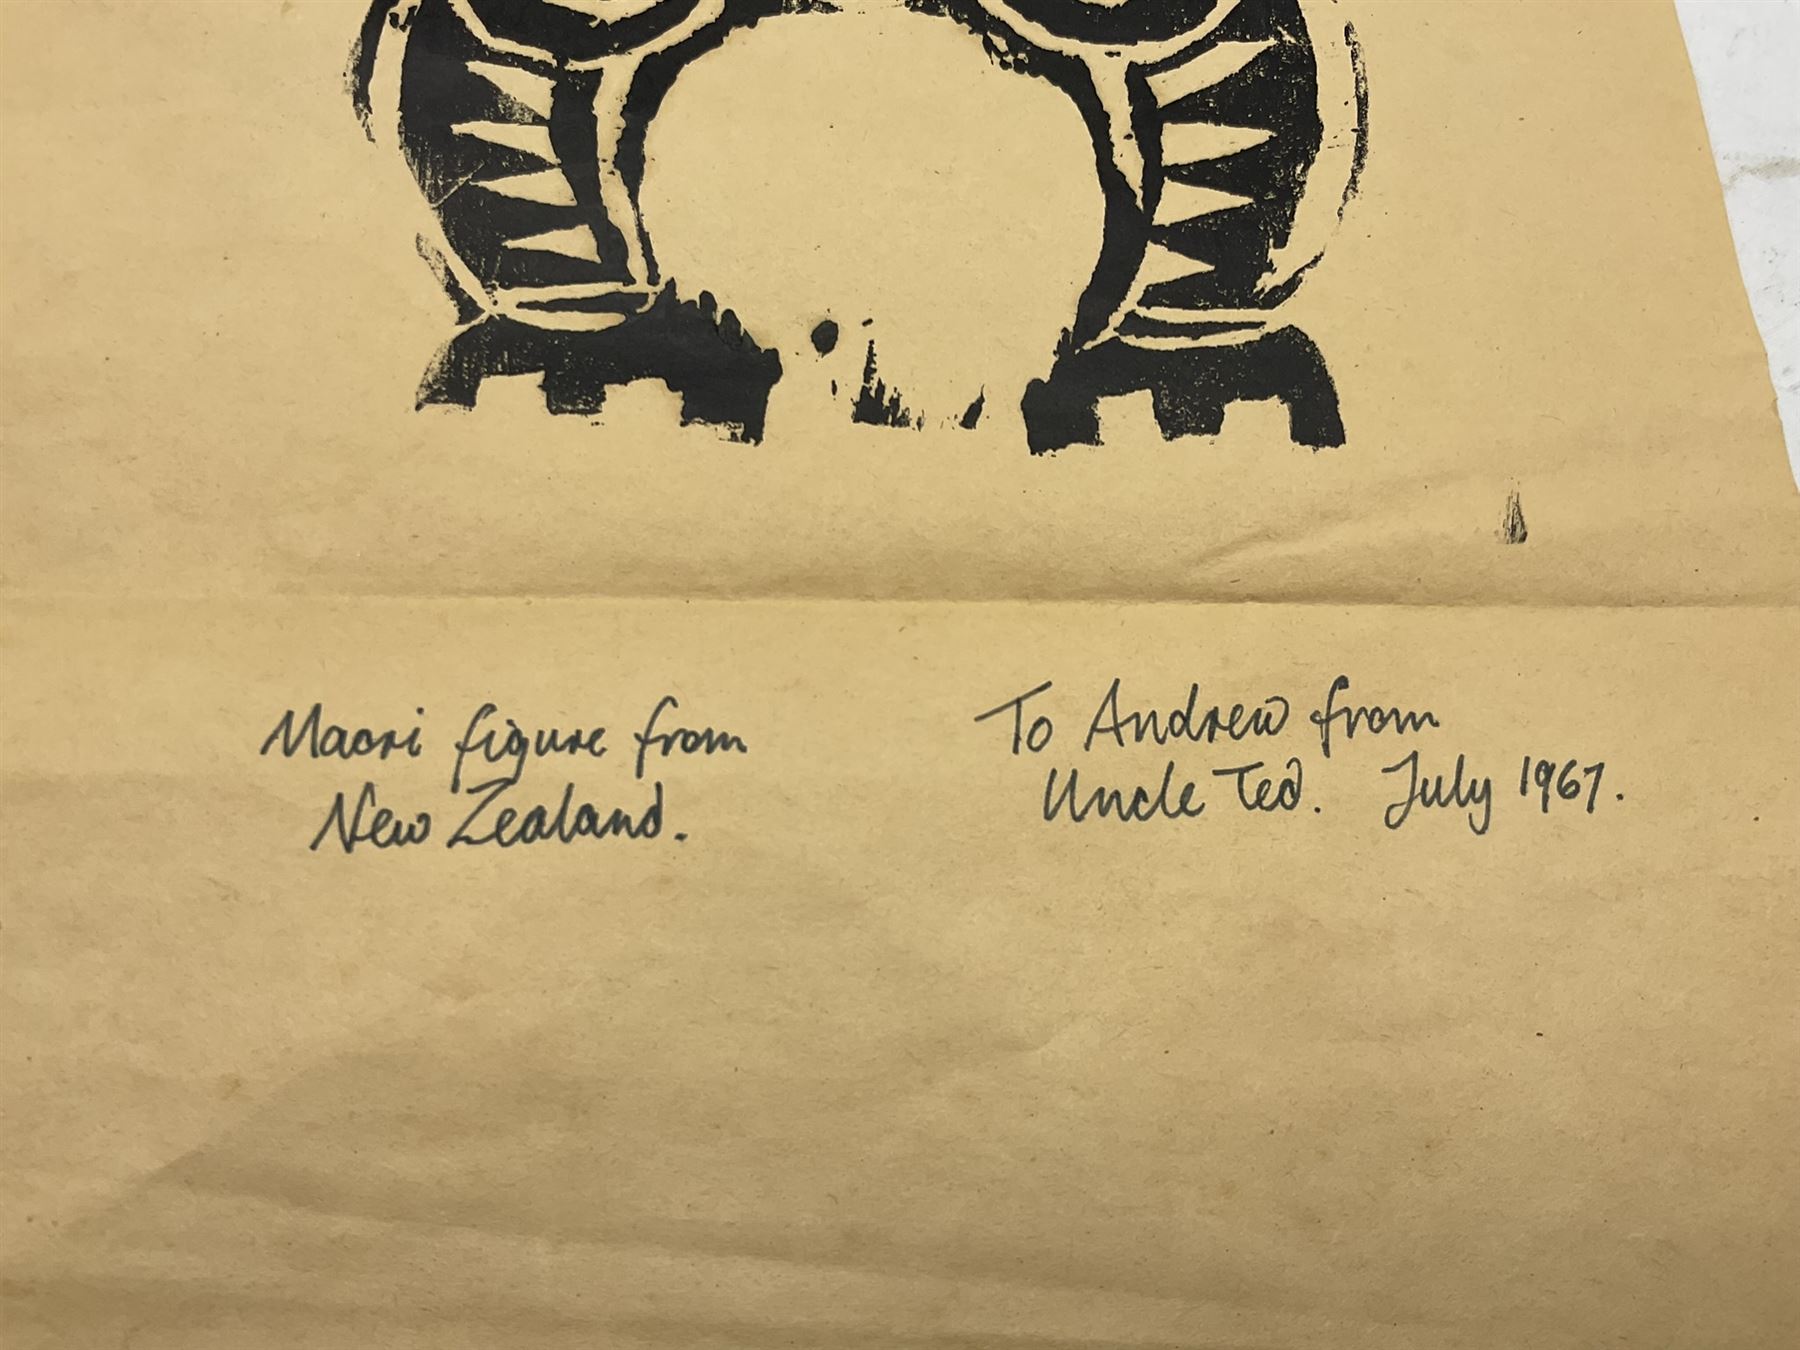 Maori figure from
New Zealand.
To Andrew from
Uncle Ted. July 1967.